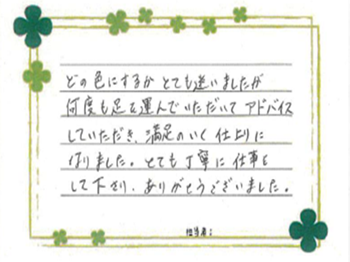 どの色にするか とても迷いましたが
何度も足を運んでいただいて アドバイス
していただき、満足のいく 仕上りに
なりました。とても丁寧に 仕事を
して下さり、ありがとうございました。
担当者：